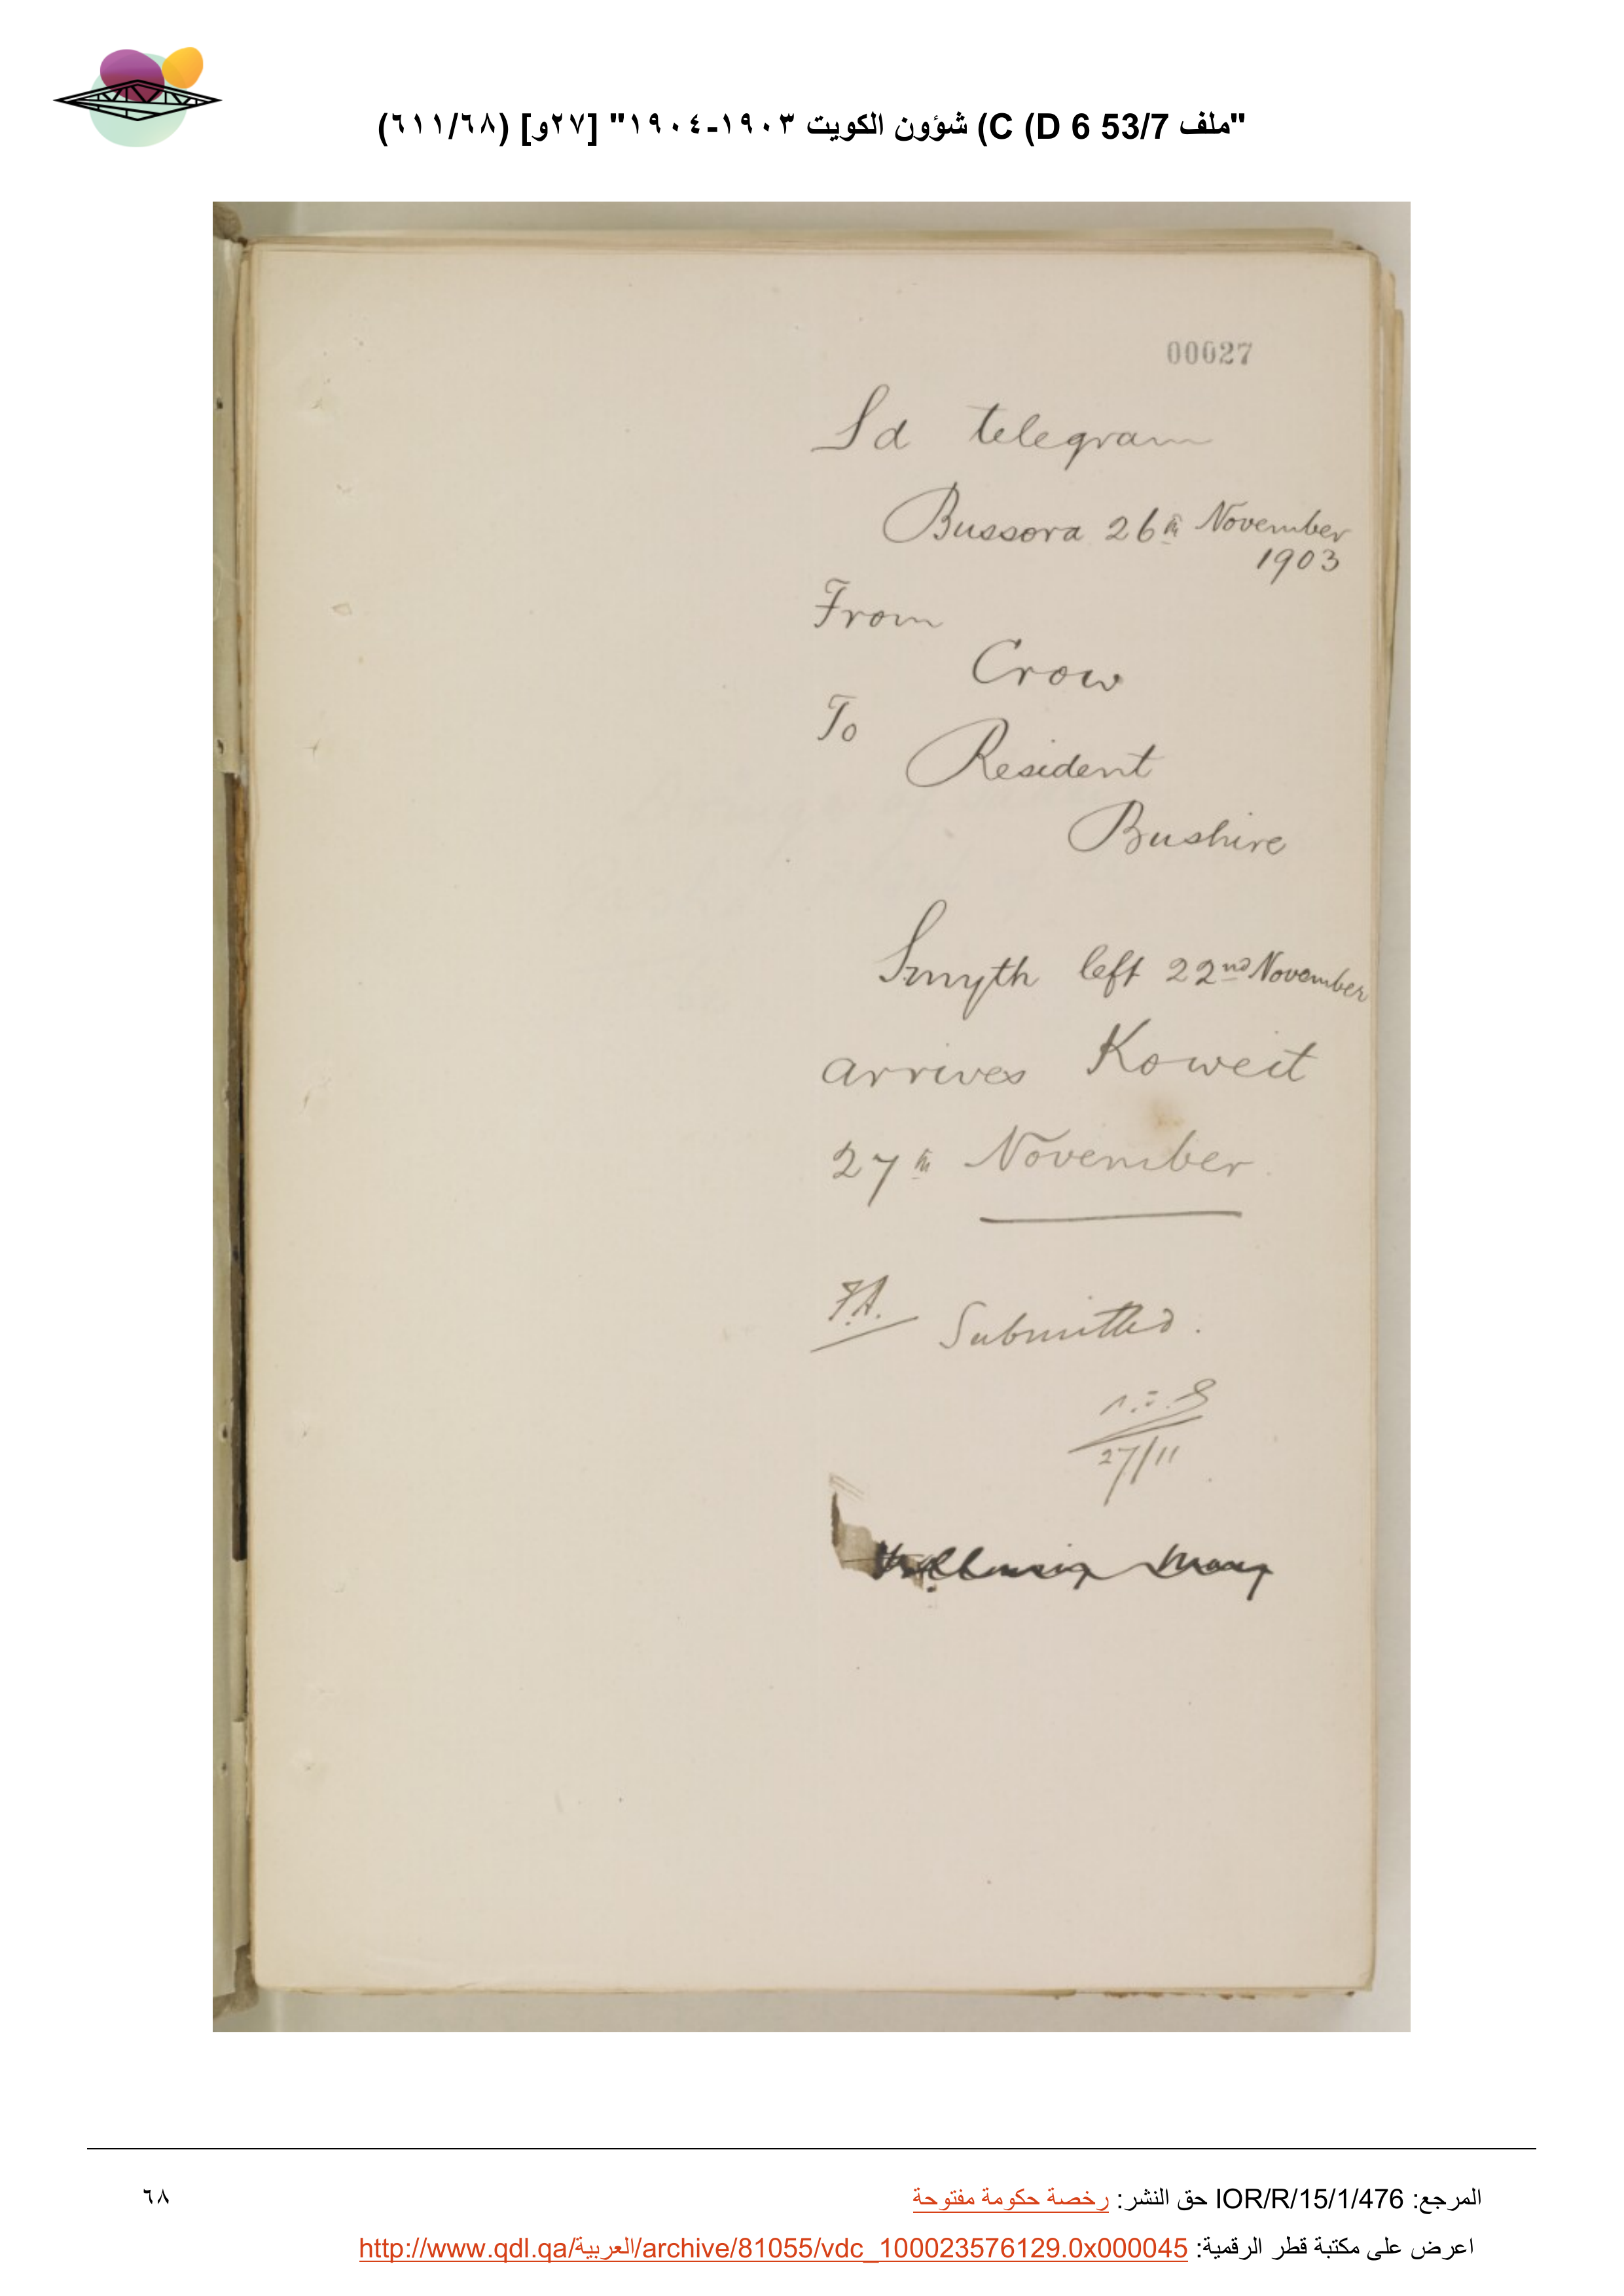 "ملف 53/7 D 6) C) شؤون الكويت ١٩٠٣-١٩٠٤" [٢٧و] (٦١١/٦٨)
00027
Sd telegram
Bussora 26th November
1903
From
Crow
To
Resident
Bushire
Smyth left 22nd November
arrives Koweit
27th November
F.A. Submitted.
27/11
المرجع: IOR/R/15/1/476 حق النشر: رخصة حكومة مفتوحة
٦٨
اعرض على مكتبة قطر الرقمية: http://www.qdl.qa/العربية/archive/81055/vdc_100023576129.0x000045